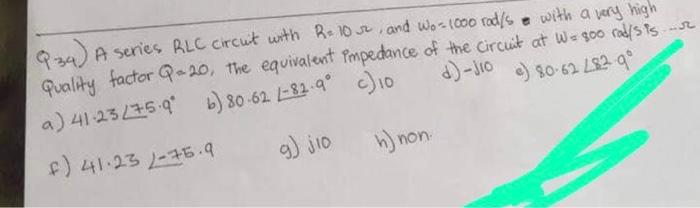 Q34) A series RLC circuit with R=10 Ω, and W₀=1000 rad/s with a very high
Quality factor Q=20, the equivalent impedance of the circuit at W=900 rad/s is ... Ω
a) 41.23∠75.9° b) 80.62 ∠-82.9° c) 10 d) -j10 e) 80.62 ∠82.9°
f) 41.23 ∠-75.9 g) j10 h) non.